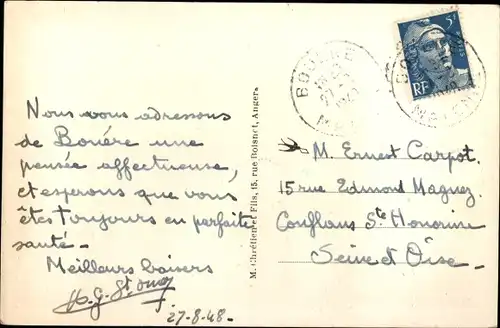 Nous vous adressons
de Bouère une
pensée affectueuse,
et espérons que vous
êtes toujours en parfaite
santé.
Meilleurs baisers
27-8-48.
M. Chrétien et Fils, 15, rue Boisnet, Angers
BOUÈRE
27
5F
RF
M. Ernest Carpot.
15 rue Edmond Magnez
Conflans Ste Honorine
Seine et Oise_